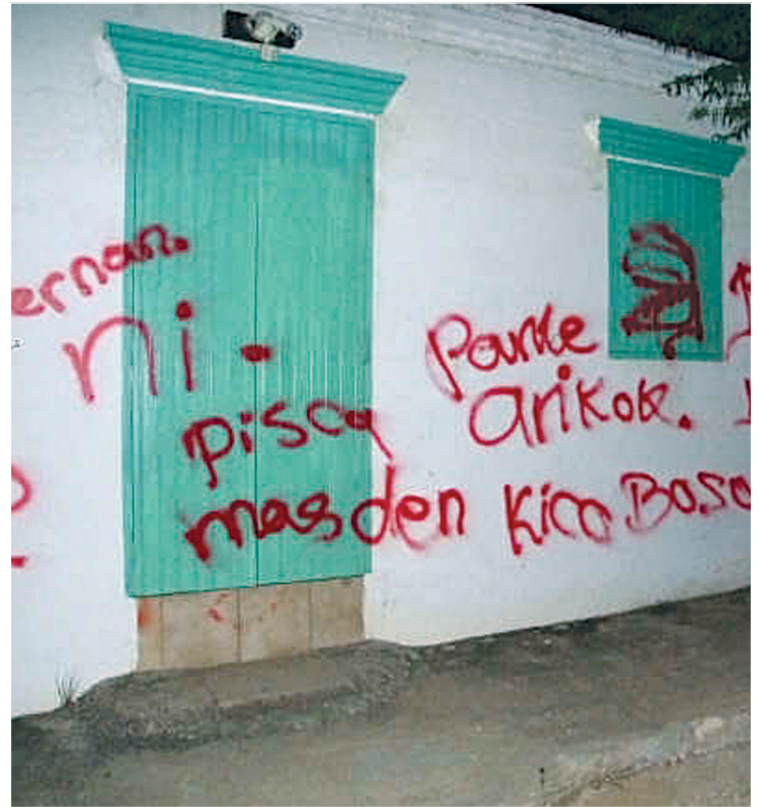 ernan.
ni.
Parke
arikok.
pisca
mas den Kico Boso